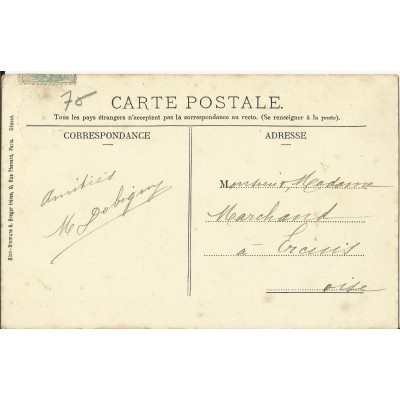 75
CARTE POSTALE.
Tous les pays étrangers n'acceptent pas la correspondance au recto. (Se renseigner à la poste).
CORRESPONDANCE
ADRESSE
Amitiés
M Dobigny
Monsieur, Madame
Marchand
à Ercuis
oise
Simi-Gravure A. Breger frères, 9, Rue Thénard, Paris. Déposé.